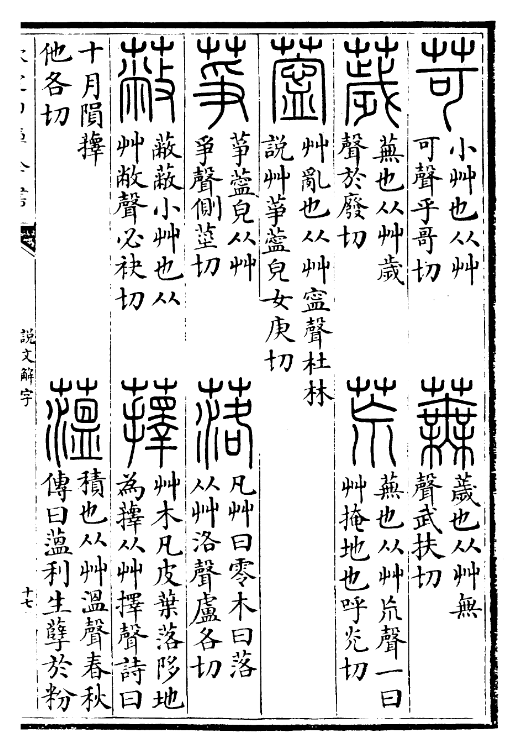 苛
小艸也从艸
可聲乎哥切
蕪
薉也从艸無
聲武扶切
薉
蕪也从艸歲
聲於廢切
荒
蕪也从艸㠩聲一曰
艸掩地也呼光切
薴
艸亂也从艸寍聲杜林
說艸䓁薴皃女庚切
䓁
䓁薴皃从艸
爭聲側莖切
落
凡艸曰零木曰落
从艸洛聲盧各切
蔽
蔽蔽小艸也从
艸敝聲必袂切
蘀
艸木凡皮葉落陊地
為蘀从艸擇聲詩曰
十月隕蘀
他各切
薀
積也从艸溫聲春秋
傳曰薀利生孽於粉
說文解字
十七